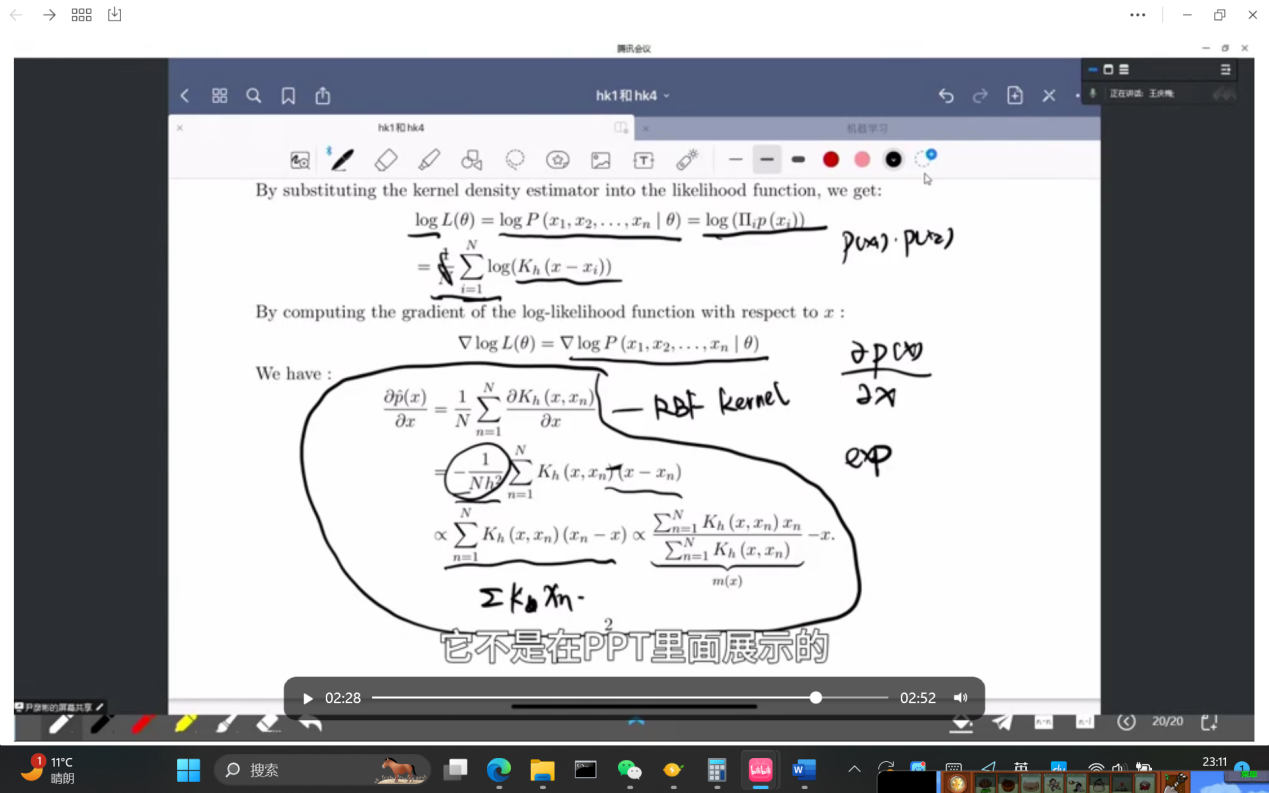 腾讯会议
hk1和hk4
正在讲话: 王庆
hk1和hk4
机器学习
By substituting the kernel density estimator into the likelihood function, we get:
log L(θ) = log P (x₁, x₂, . . . , xₙ | θ) = log (Πᵢp (xᵢ))
p(x1) · p(x2)
= 1/N ∑_{i=1}^{N} log(K_h (x − xᵢ))
By computing the gradient of the log-likelihood function with respect to x :
∇ log L(θ) = ∇ log P (x₁, x₂, . . . , xₙ | θ)
∂p(x)/∂x
We have :
∂p̂(x)/∂x = 1/N ∑_{n=1}^{N} ∂K_h (x, xₙ)/∂x
— RBF kernel
exp
= −1/(Nh²) ∑_{n=1}^{N} K_h (x, xₙ) (x − xₙ)
∝ ∑_{n=1}^{N} K_h (x, xₙ) (xₙ − x) ∝ ∑_{n=1}^{N} K_h (x, xₙ) xₙ / ∑_{n=1}^{N} K_h (x, xₙ) −x.
m(x)
Σ K Xn -
2
它不是在PPT里面展示的
02:28
02:52
的屏幕共享
20/20
1
11°C
晴朗
搜索
英
23:11